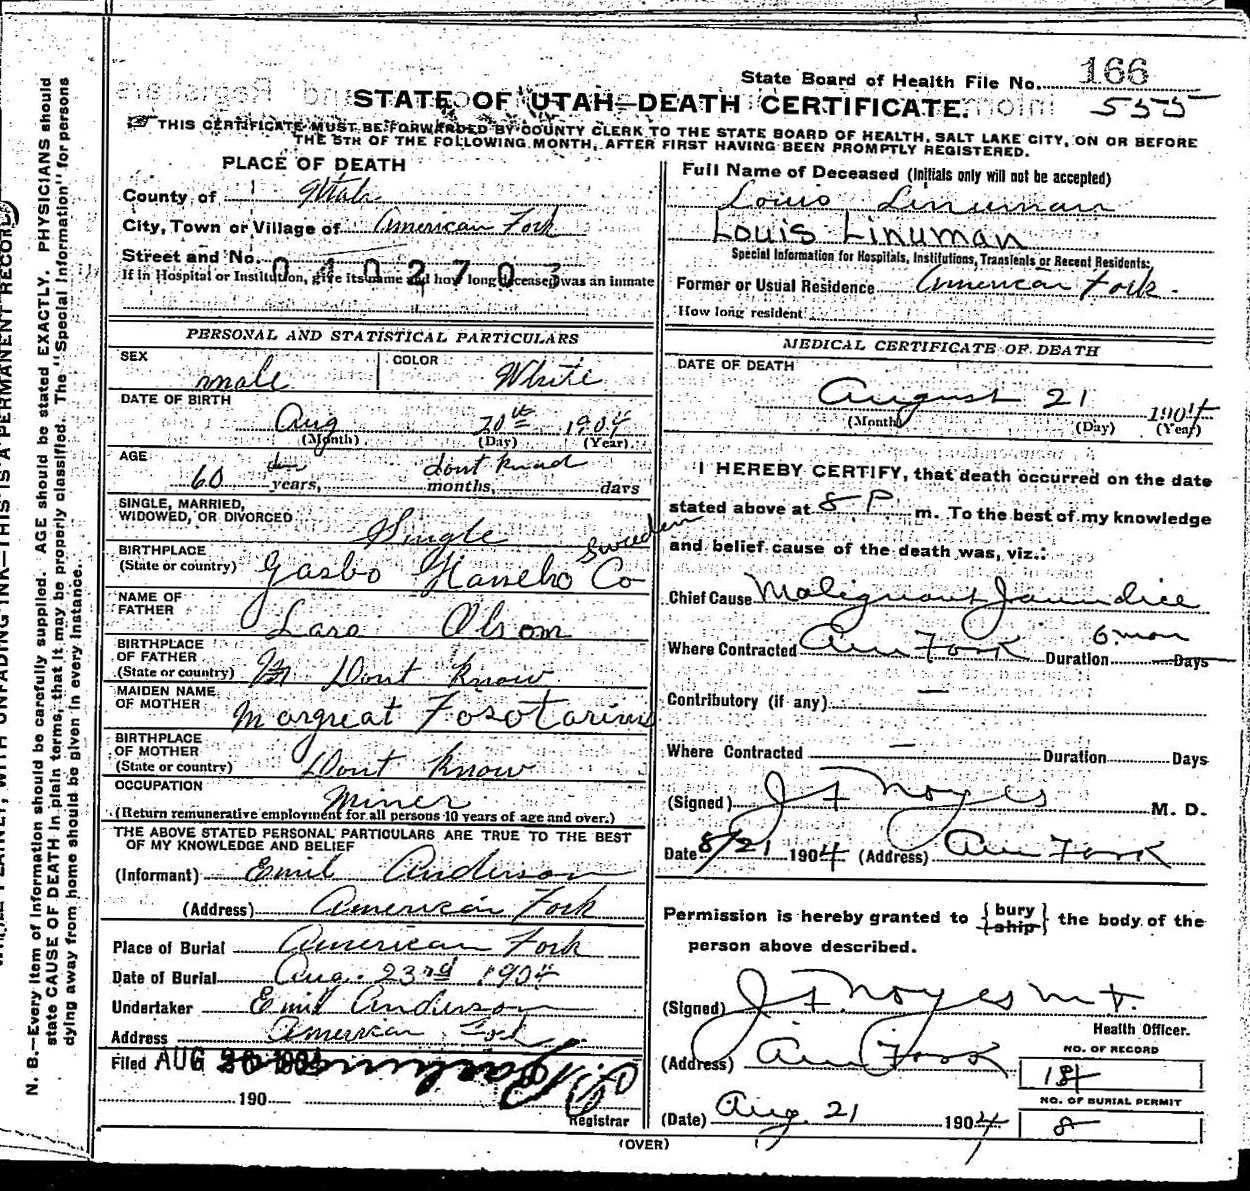 State Board of Health File No. 166
STATE OF UTAH—DEATH CERTIFICATE. 555
THIS CERTIFICATE MUST BE FORWARDED BY COUNTY CLERK TO THE STATE BOARD OF HEALTH, SALT LAKE CITY, ON OR BEFORE
THE 5TH OF THE FOLLOWING MONTH, AFTER FIRST HAVING BEEN PROMPTLY REGISTERED.
PLACE OF DEATH
County of Utah
City, Town or Village of American Fork
Street and No.
If in Hospital or Institution, give its name and how long deceased was an inmate
PERSONAL AND STATISTICAL PARTICULARS
SEX male COLOR White
DATE OF BIRTH Aug 1904
(Month) (Day) (Year)
AGE 60 years, dont months, days
SINGLE, MARRIED,
WIDOWED, OR DIVORCED Single
BIRTHPLACE
(State or country) Co Sweden
NAME OF
FATHER Lars Olsom
BIRTHPLACE
OF FATHER
(State or country) Dont Know
MAIDEN NAME
OF MOTHER Margreat
BIRTHPLACE
OF MOTHER
(State or country) Dont Know
OCCUPATION Miner
(Return remunerative employment for all persons 10 years of age and over.)
THE ABOVE STATED PERSONAL PARTICULARS ARE TRUE TO THE BEST
OF MY KNOWLEDGE AND BELIEF
(Informant) Emil Anderson
(Address) American Fork
Place of Burial American Fork
Date of Burial Aug. 23rd 1904
Undertaker Emil Anderson
Address American Fork
Filed AUG 26 1904
190
Registrar
Full Name of Deceased (Initials only will not be accepted)
Louis Linuman
LOUIS LINUMAN
Special Information for Hospitals, Institutions, Transients or Recent Residents:
Former or Usual Residence American Fork.
How long resident
MEDICAL CERTIFICATE OF DEATH
DATE OF DEATH
August 21 1904
(Month) (Day) (Year)
I HEREBY CERTIFY, that death occurred on the date
stated above at 8 P m. To the best of my knowledge
and belief cause of the death was, viz.:
Chief Cause Malignant Jaundice
Where Contracted Am Fork Duration 6 mon Days
Contributory (if any) —
Where Contracted — Duration Days
(Signed) J F Noyes M. D.
Date 8/21 1904 (Address) Am Fork
Permission is hereby granted to {bury ship} the body of the
person above described.
(Signed) J F Noyes M D.
Health Officer.
(Address) Am Fork
NO. OF RECORD
18
NO. OF BURIAL PERMIT
8
(Date) Aug. 21 1904
(OVER)
N. B.—Every item of Information should be carefully supplied. AGE should be stated EXACTLY. PHYSICIANS should
state CAUSE OF DEATH in plain terms, that it may be properly classified. The "Special Information" for persons
dying away from home should be given in every instance.
WITH UNFADING INK—THIS IS A PERMANENT RECORD